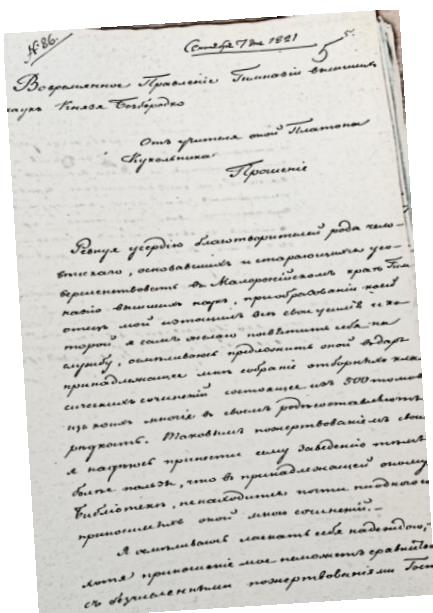 № 86.
Сентября 7 дня 1821
5
Во временное Правленіе Гимназіи высшихъ
наукъ Князя Безбородко
Отъ учителя оной Платона
Кукольника
Прошеніе
Ревнуя усердію благотворителей рода чело-
вѣческаго, основавшихъ и старающихся усо-
вершенствовать въ Малороссійскомъ краѣ Гим-
назію высшихъ наукъ, при образованіи коей
отецъ мой истощилъ всѣ свои усилія и ко-
торой я самъ желаю посвятить себя на
службу, осмѣливаюсь предложить оной въ даръ
принадлежащее мнѣ собраніе отборныхъ клас-
сическихъ сочиненій состоящее изъ 500 томовъ
изъ коихъ многіе въ своемъ родѣ составляютъ
рѣдкость. Таковымъ пожертвованіемъ своимъ
я надѣюсь принести сему заведенію тѣмъ
болѣе пользы, что въ принадлежащей оному
Библіотекѣ, не находится почти ни одного
приносимыхъ оной мною сочиненій. —
Я осмѣливаюсь ласкать себя надеждою,
хотя приношеніе мое не можетъ сравниться
съ безчисленными пожертвованіями Гос